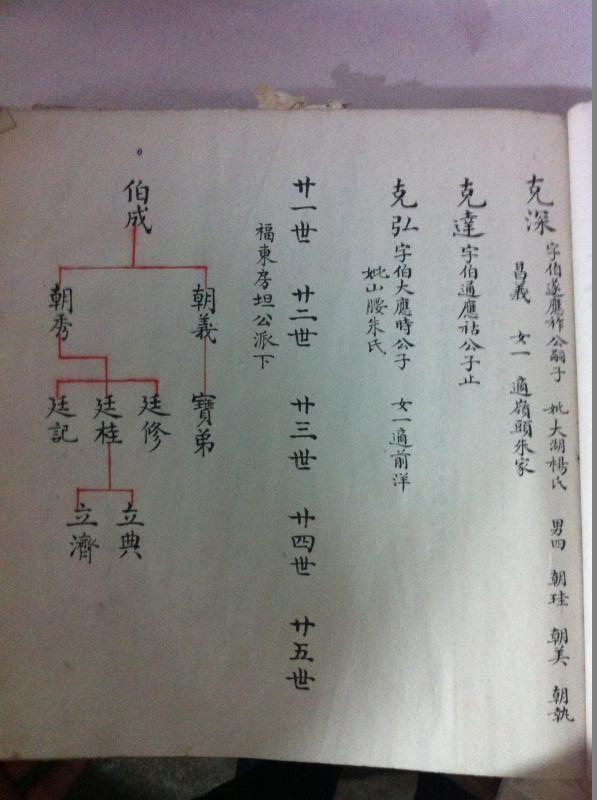 克深 字伯遂應祚公嗣子 妣大湖楊氏 男四 朝珪 朝美 朝執
昌義 女一 適嶺頭朱家
克達 字伯通應祜公子止
克弘 字伯大應時公子 女一適前洋
妣山腰朱氏
廿一世 廿二世 廿三世 廿四世 廿五世
福東房坦公派下
伯成
朝義 朝秀
寶弟 廷修 廷桂 廷記
立典 立濟